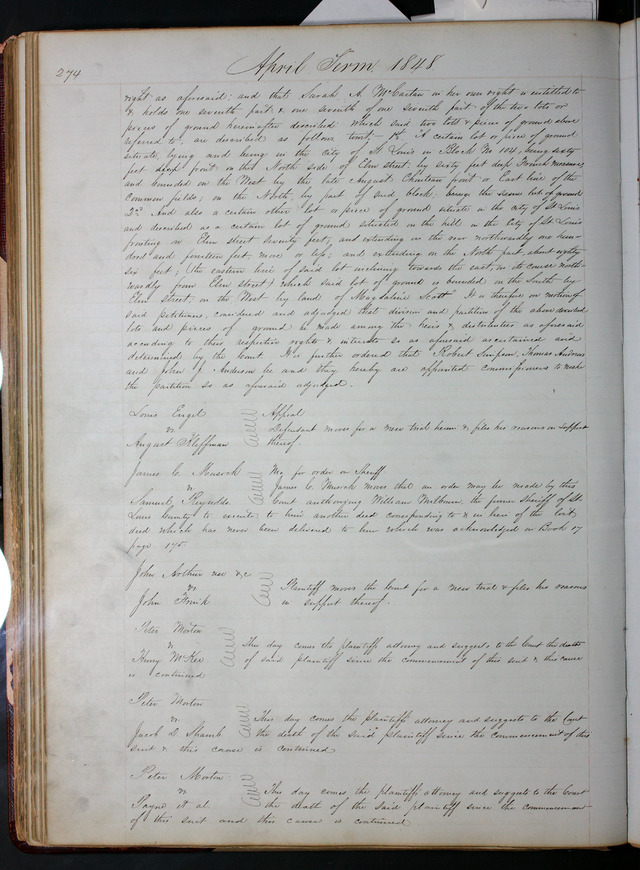 274
April Term 1848
right as aforesaid; and that Sarah A. McCartin in her own right is entitled to
& holds one seventh part & one seventh of one seventh part of the two lots or
pieces of ground hereinafter described which said two lots & pieces of ground above
referred to, are described as follows towit, 1st A certain lot or piece of ground
situate, lying and being in the City of St Louis in Block No 104, being sixty
feet front on the North side of Elm street, by sixty feet deep French measure,
and bounded on the West by the late August Chouteau front or East line of the
Common fields; on the North, by part of said block; being the same lot of ground
2d And also a certain other lot or piece of ground situate in the city of St Louis
and described as a certain lot of ground situated on the hill in the City of St Louis
fronting on Elm street twenty feet, and extending in the rear northwardly one hun-
dred and fourteen feet, more or less; and extending on the North part about eighty
six feet; (the eastern line of said lot inclining towards the east, in its course north-
wardly from Elm street) which said lot of ground is bounded on the South by
Elm street, on the West by land of Magdaline Scott It is therefore on motion of
said petitioners, considered and adjudged that division and partition of the above
lots and pieces of ground be made among the heirs & distributees as aforesaid
according to their respective rights & interests so as aforesaid ascertained and
determined by the Court It is further ordered that Robert Simpson, Thomas Andrews
and John J. Anderson be and they hereby are appointed commissioners to make
the partition so as aforesaid adjudged.
Louis Engel
vs
August Kleffman
Appeal
Defendant moves for a new trial herein & files his reasons in support
thereof.
James C. Musick
vs
Samuel Reynolds
Mo for order on Sheriff
James C. Musick moves that an order may be made by this
Court authorizing William Milburn, the former Sheriff of St
Louis County to execute to him another deed corresponding to & in lieu of the lost
deed which has never been delivered to him which was acknowledged in Book 17
page 175
John Arthur use &c
vs
John Frink
Plaintiff moves the Court for a new trial & files his reasons
in support thereof.
Peter Morton
vs
Henry McKee
This day comes the plaintiffs attorney and suggests to the Court the death
of said plaintiff since the commencement of this suit & this cause
is continued
Peter Morton
vs
Jacob D. Shamb
This day comes the plaintiffs attorney and suggests to the Court
the death of the said plaintiff since the commencement of this
suit & this cause is continued
Peter Morton
vs
Payne et al
This day comes the plaintiffs attorney and suggests to the Court
the death of the said plaintiff since the commencement
of this suit and this cause is continued